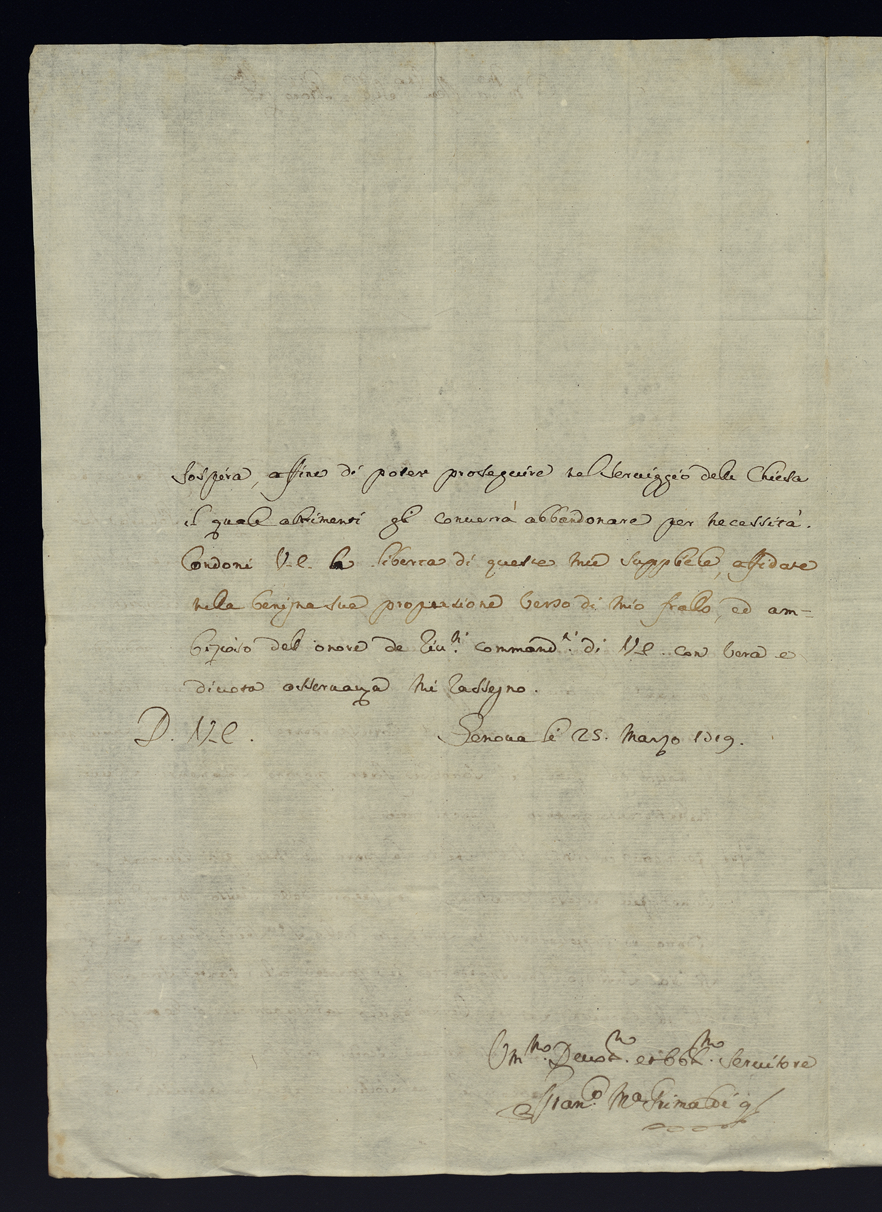 sospira, affine di poter proseguire nel Serviggio della Chiesa
il quale altrimenti gli converrà abbandonare per necessità.
Condoni V.E. la libertà di queste mie suppliche, affidate
nella benigna sua propensione verso di mio frallo, ed am=
bizioso del onore de riv.ti command.ti di V.E. con vera e
divota osservanza mi rassegno.
D. V.E.
Genova li 25. Marzo 1819.
Um.mo Devot.mo et obb.mo Servitore
Fran.co M.a Grimaldi q